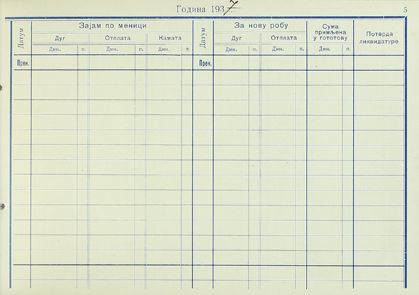 Година 1937
5
Датум Зајам по меници Датум За нову робу Сума примљена у готогову Потврда ликвидатуре
Дуг Отплата Камата Дуг Отплата
Дин. п. Дин. п. Дин. п. Дин. п. Дин. п. Дин. п.
Прен. Прен.